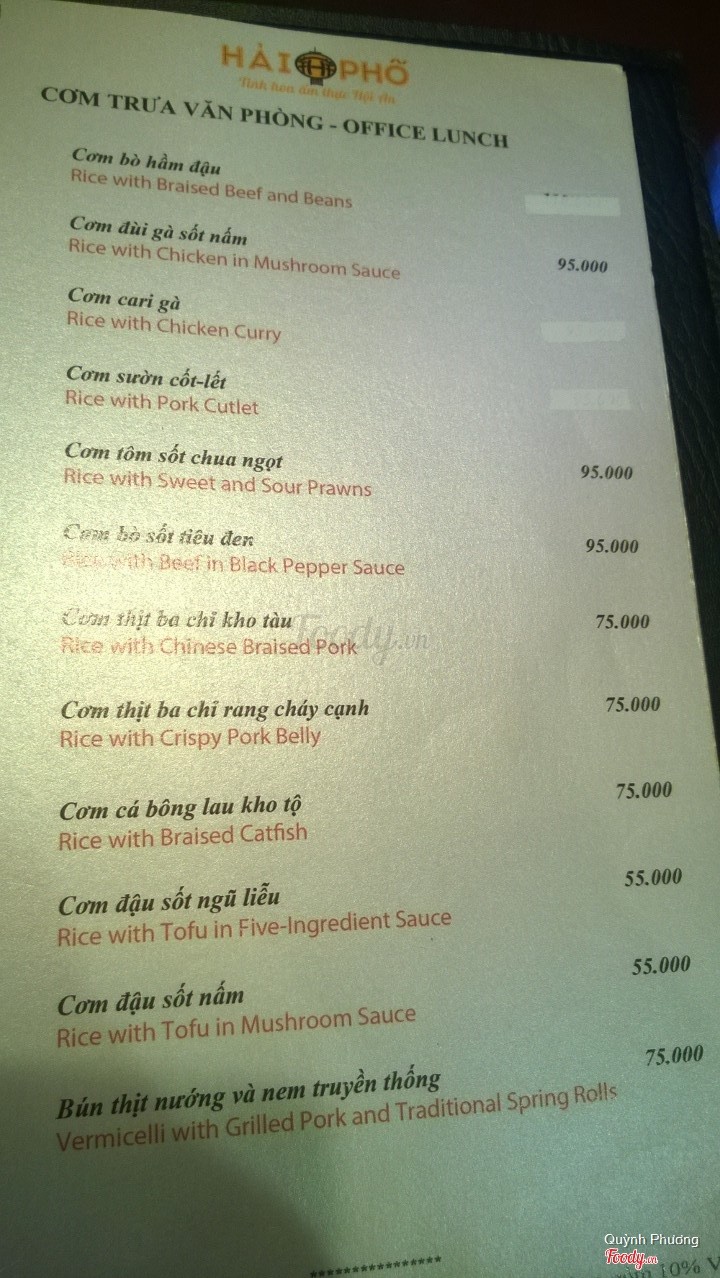 HẢI PHỐ
Tinh hoa ẩm thực Hội An
CƠM TRƯA VĂN PHÒNG - OFFICE LUNCH
Cơm bò hầm đậu
Rice with Braised Beef and Beans
Cơm đùi gà sốt nấm
Rice with Chicken in Mushroom Sauce 95.000
Cơm cari gà
Rice with Chicken Curry
Cơm sườn cốt-lết
Rice with Pork Cutlet
Cơm tôm sốt chua ngọt 95.000
Rice with Sweet and Sour Prawns
Cơm bò sốt tiêu đen 95.000
Rice with Beef in Black Pepper Sauce
Cơm thịt ba chỉ kho tàu 75.000
Rice with Chinese Braised Pork
Foody.vn
Cơm thịt ba chỉ rang cháy cạnh 75.000
Rice with Crispy Pork Belly
Cơm cá bông lau kho tộ 75.000
Rice with Braised Catfish
Cơm đậu sốt ngũ liễu 55.000
Rice with Tofu in Five-Ingredient Sauce
Cơm đậu sốt nấm 55.000
Rice with Tofu in Mushroom Sauce
Bún thịt nướng và nem truyền thống 75.000
Vermicelli with Grilled Pork and Traditional Spring Rolls
****************
10%
Quỳnh Phương
Foody.vn